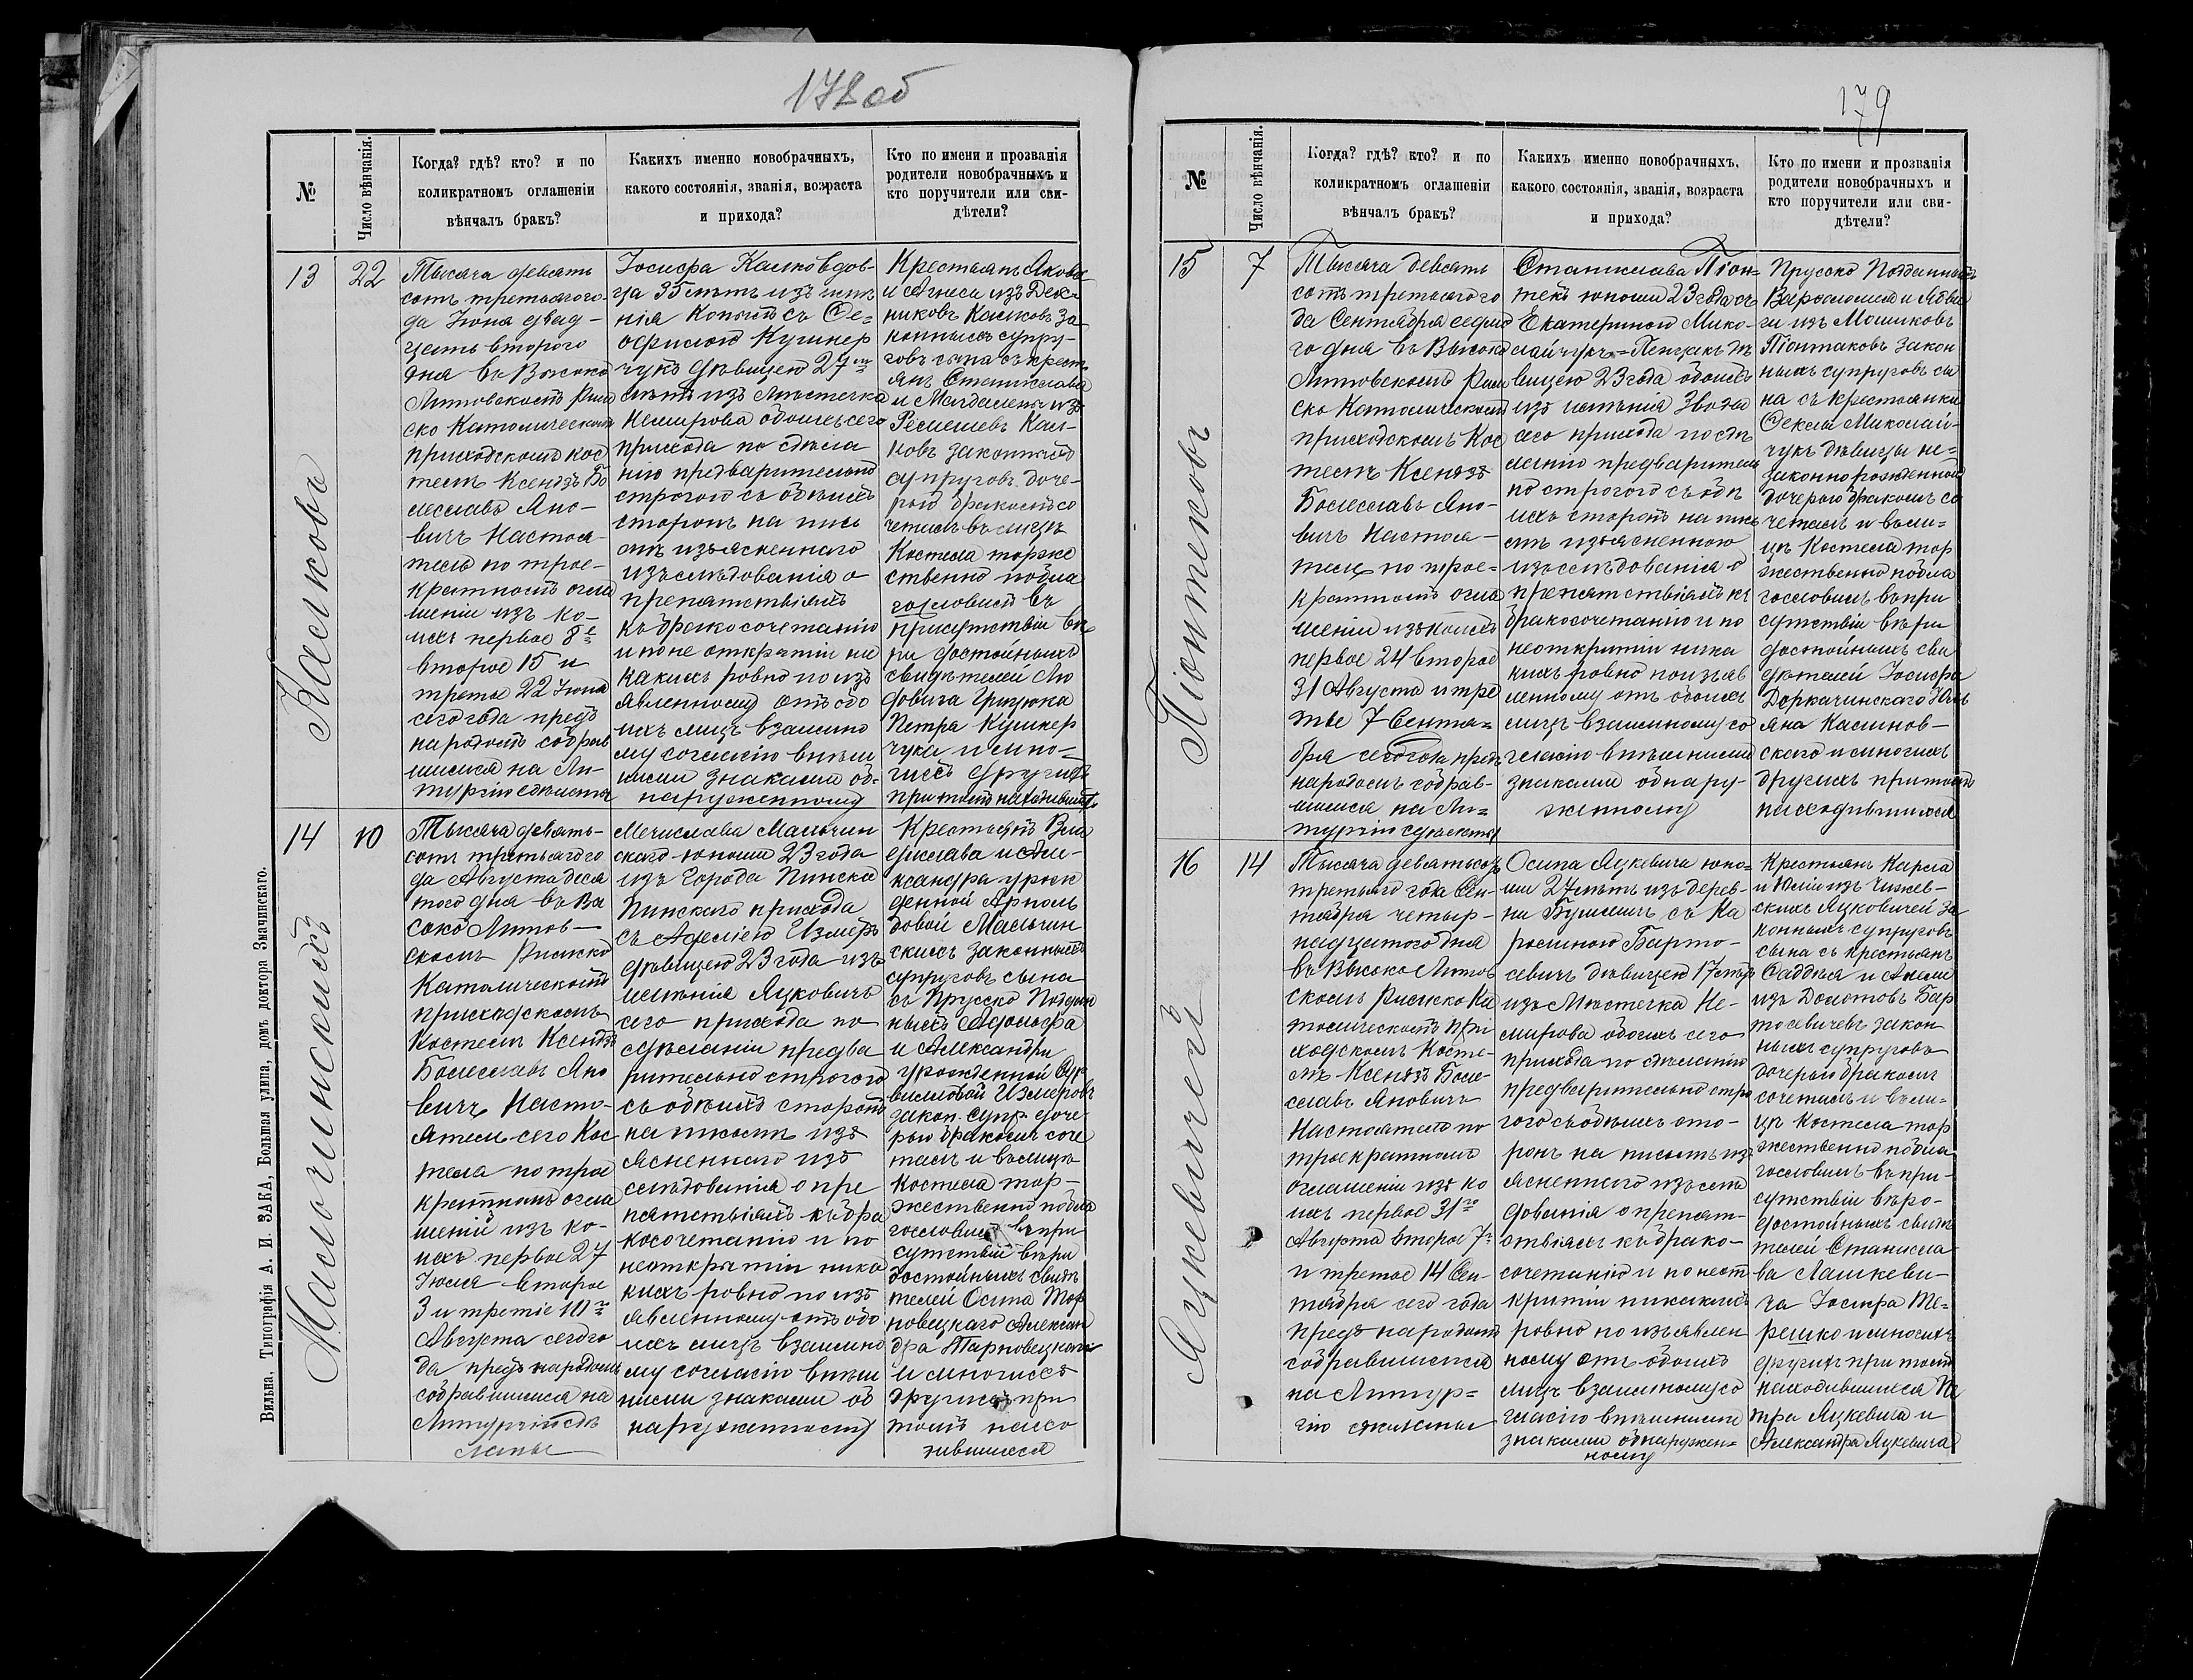 178 об
№
Число вѣнчанія.
Когда? гдѣ? кто? и по
коликратномъ оглашеніи
вѣнчалъ бракъ?
Какихъ именно новобрачныхъ,
какого состоянія, званія, возраста
и прихода?
Кто по имени и прозванія
родители новобрачныхъ и
кто поручители или сви-
дѣтели?
13
22
Тысяча девять
сотъ третьяго го-
да Іюня двад-
цать второго
дня въ Высоко
Литовскомъ Рим
ско Католическомъ
приходскомъ кос
телѣ Ксендзъ Бо
леславъ Яно-
вичъ Настоя-
тель по трое-
кратномъ огла
шеніи изъ ко-
ихъ первое 8е
второе 15 и
третье 22 Іюня
сего года предъ
народомъ собрав
шимся на Ли-
тургію сдѣланы
Іосифа Калко вдов-
ца 35 лѣтъ изъ имѣ
нія Копыты съ Ѳе=
офилою Кушнер
чукъ дѣвицею 27ми
лѣтъ изъ Мѣстечка
Немирова обоихъ сего
прихода по сдѣла
нію предварительно
строгого съ обѣихъ
сторонъ на пись
мѣ изъясненнаго
изслѣдованія о
препятствіяхъ
къ бракосочетанію
и по не открытіи ни
какихъ ровно по изъ
явленному отъ обо
ихъ лицъ взаимно
му согласію внѣш
ними знаками об-
наруженному
Крестьянъ Якова
и Агнеси изъ Дек-
никовъ Калковъ за
конныхъ супру-
говъ сына съ крест
янъ Станислава
и Магдалены изъ
Ремешевъ Кал-
ковъ законныхъ
супруговъ доче-
рью бракомъ со
четалъ въ лицѣ
Костела торже
ственно побла
гословилъ въ
присутствіи вѣ
ри достойныхъ
свидѣтелей Лю
довига Грицюка
Петра Кушнер
чука и мно-
гихъ другихъ
при томъ находившихся
Калкова
14
10
Тысяча девять-
сотъ третьяго го
да Августа деся
того дня въ Вы
соко Литов-
скомъ Римско
Католическомъ
приходскомъ
Костелѣ Ксендзъ
Болеславъ Яно
вичъ Насто-
ятель сего Кос
тела по трое
кратномъ огла
шеніи изъ ко-
ихъ первое 27
Іюля второе
3 и третіе 10го
Августа сего го
да предъ народомъ
собравшимся на
Литургію сдѣ
ланы
Мечислава Мальчин
скаго юноши 23 года
изъ города Пинска
Пинскаго прихода
съ Аделіею Измеръ
дѣвицею 23 года изъ
имѣнія Луковичъ
сего прихода по
сдѣланіи предва
рительно строгого
съ обѣихъ сторонъ
на письмѣ изъ
ясненнаго изъ
слѣдованія о пре
пятствіяхъ къ бра
косочетанію и по
неоткрытіи ника
кихъ ровно по изъ
явленному отъ обо
ихъ лицъ взаимно
му согласію внѣш
ними знаками об
наруженному
Крестьянъ Вла
дислава и Але-
ксандра урож
денной Арноль
довой Мальчин
скихъ законныхъ
супруговъ сына
съ Прусско Поддан
ныхъ Адольфа
и Александри
урожденной
Измеровъ
закон. супр. доче-
рью бракомъ соче
талъ и въ лицѣ
Костела тор-
жественно побла
гословилъ въ при
сутствіи вѣри
достойныхъ свидѣ
телей Осипа Тор
новецкаго Алексан
дра Тарновецкаго
и многихъ
другихъ при
томъ нахо
дившихся
Малочинскихъ
Вильна. Типографія А. И. ЗАКА, Большая улица, домъ доктора Змачинскаго.
179
№
Число вѣнчанія.
Когда? гдѣ? кто? и по
коликратномъ оглашеніи
вѣнчалъ бракъ?
Какихъ именно новобрачныхъ,
какого состоянія, званія, возраста
и прихода?
Кто по имени и прозванія
родители новобрачныхъ и
кто поручители или сви-
дѣтели?
15
7
Тысяча девять
сотъ третьяго го
да Сентября седмо
го дня въ Высоко
Литовскомъ Рим
ско Католическомъ
приходскомъ Кос
телѣ Ксендзъ
Болеславъ Яно-
вичъ Настоя-
тель по трое=
кратномъ огла
шеніи изъ коихъ
первое 24 второе
31 Августа и тре
тье 7 Сентя=
бря сего года предъ
народомъ собрав-
шимся на Ли=
тургію сдѣланы
Станислава Піон=
текъ юноши 23 года съ
Екатериною Мико-
лайчукъ=Пенцакъ дѣ
вицею 23 года обоихъ
изъ имѣнія Зводы
сего прихода по сдѣ
ланію предваритель
но строгого съ обѣ
ихъ сторонъ на пись
мѣ изъясненною
изслѣдованія о
препятствіяхъ къ
бракосочетанію и по
неоткрытіи ника
кихъ ровно по изъяв
ленному отъ обоихъ
лицъ взаимному со
гласію внѣшними
знаками обнару-
женному
Прусско Подданныхъ
Варфоломея и Ядви
ги изъ Мошиковъ
Піонтаковъ закон
ныхъ супруговъ сы
на съ крестьянки
Ѳеклы Миколай-
чукъ дѣвицы не=
законнорожденной
дочерью бракомъ со
четалъ и въ ли=
цѣ Костела тор
жественно побла
гословилъ въ при
сутствіи вѣри
достойныхъ сви
дѣтелей Іосифа
Доркачинскаго
яна Калинов-
скаго и многихъ
другихъ при томъ
находившихся
Піонтековъ
16
14
Тысяча девятьсотъ
третьяго года Сен-
тября четыр-
надцатого дня
въ Высоко Литов
скомъ Римско Ка
толическомъ при
ходскомъ Косте-
лѣ Ксендзъ Боле-
славъ Яновичъ
Настоятель по
троекратномъ
оглашеніи изъ ко
ихъ первое 31го
Августа второе 7го
и третье 14 Сен-
тября сего года
предъ народомъ
собравшимся
на Литур=
гію сдѣланы
Осипа Луцкевича юно-
ши 27 лѣтъ изъ дерев-
ни Бушмичъ съ Ка
ролиною Барто-
севичъ дѣвицею 17 лѣтъ
изъ Мѣстечка Не-
мирова обоихъ сего
прихода по сдѣланію
предварительно стро
гого съ обѣихъ сто-
ронъ на письмѣ изъ
ясненного изслѣ
дованія о препят-
ствіяхъ къ брако-
сочетанію и по неот
крытіи никакихъ
ровно по изъявлен
ному отъ обоихъ
лицъ взаимному со
гласію внѣшними
знаками обнаружен=
ному
Крестьянъ Карла
и Юліи изъ Чижев-
скихъ Луцковичей за
конныхъ супруговъ
сына съ крестьянъ
Ѳаддея и Анели
изъ Домотовъ Бар
тосевичевъ закон
ныхъ супруговъ
дочерью бракомъ
сочеталъ и въ ли=
цѣ Костела тор
жественно побла
гословилъ въ при-
сутствіи вѣро-
достойныхъ свидѣ
телей Станисла
ва Лашкеви-
ча Іосифа Те=
решко и многихъ
другихъ при томъ
находившихся Пе
тра Луцкевича и
Александра Луцкевича
Луцкевичей